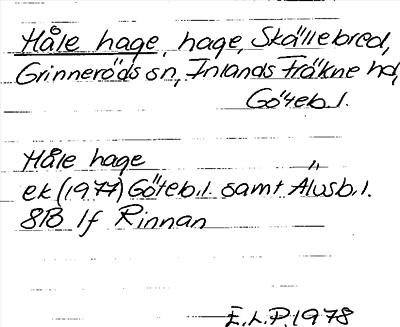 Håle hage, hage, Skällebred,
Grinneröds sn, Inlands Fräkne hd,
Göteb.l.
Håle hage "
ek (1977) Göteb.l. samt Älvsb.l.
8B 1f Rinnan
E.L.P. 1978